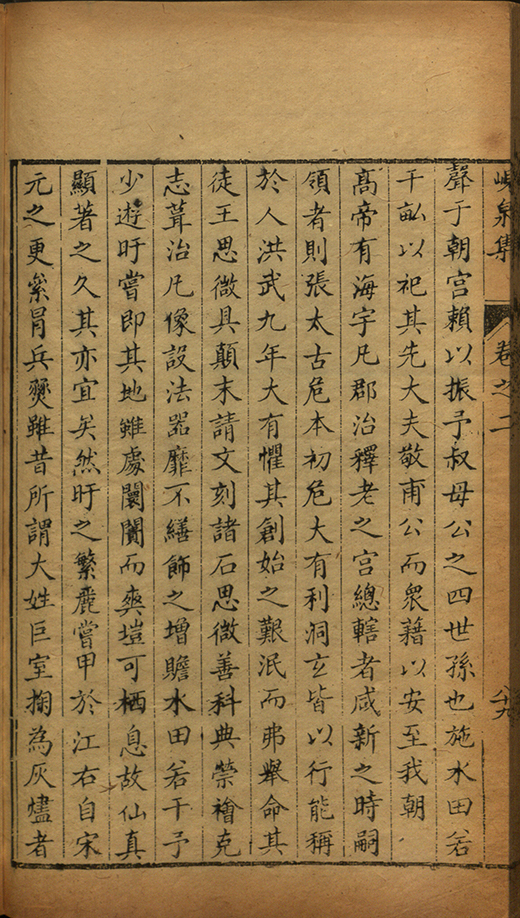 峴泉集 卷之二 八九
聲于朝宮賴以振予叔母公之四世孫也施水田若
干畝以祀其先大夫敬甫公而衆藉以安至我朝
高帝有海宇凡郡治釋老之宮總轄者咸新之時嗣
領者則張太古危本初危大有利洞玄皆以行能稱
於人洪武九年大有懼其創始之艱泯而弗舉命其
徒王思微具顛末請文刻諸石思微善科典禜禬克
志葺治凡像設法器靡不繕飾之增贍水田若干予
少遊盱嘗即其地雖處闤闠而爽塏可栖息故仙真
顯著之久其亦宜矣然盱之繁麗嘗甲於江右自宋
元之更縈罥兵燹雖昔所謂大姓巨室掬為灰燼者